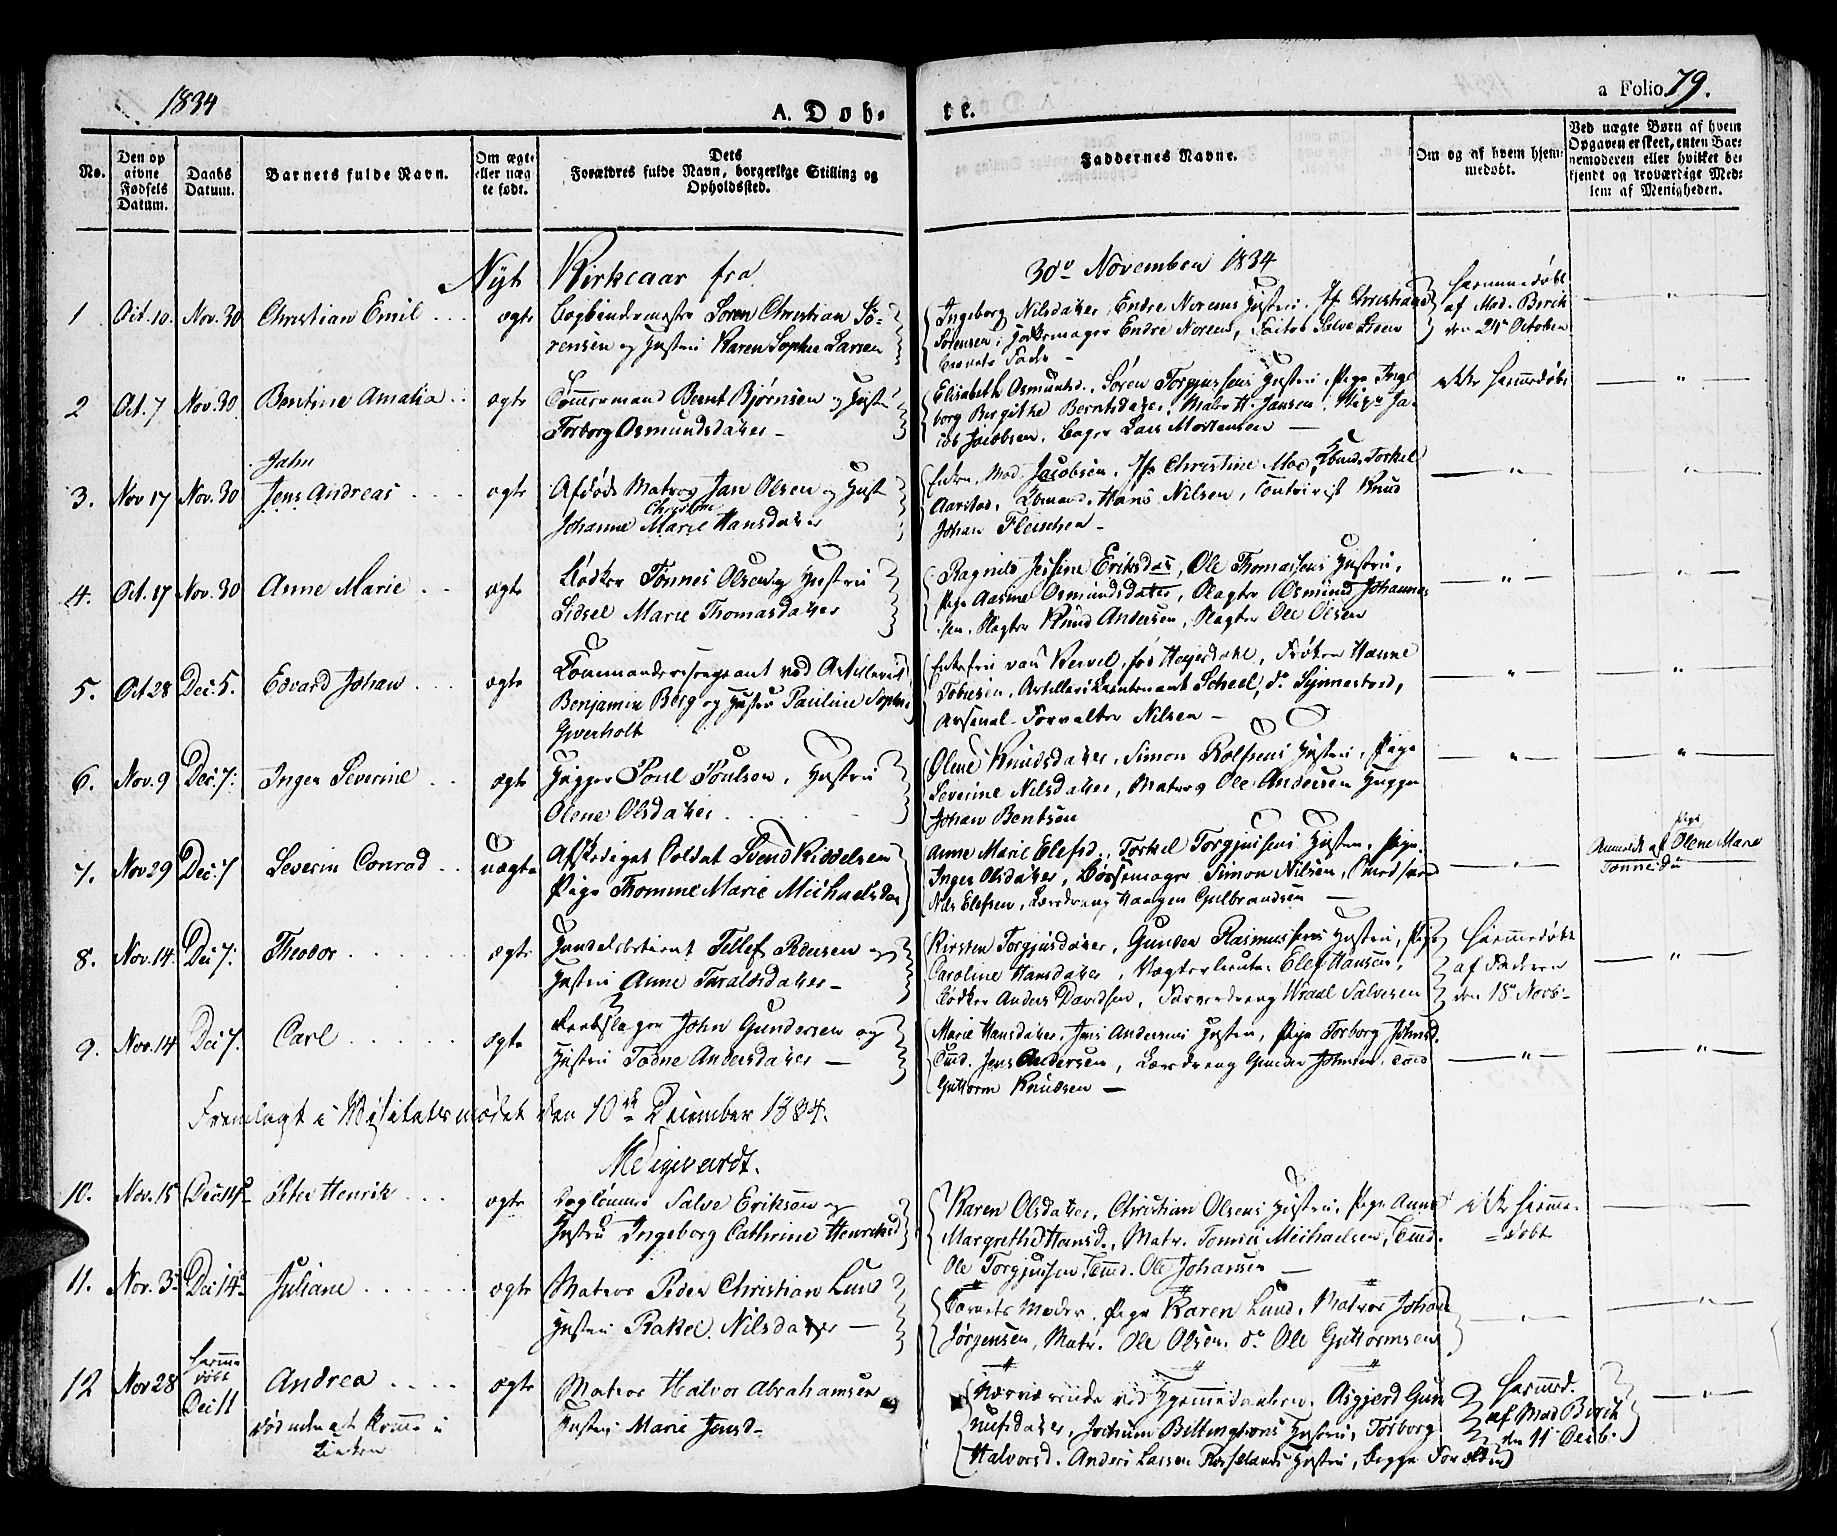 1834
A. Døb-
te.
a Folio 79.
No.
Den op
givne
Fødsels
Datum.
Daabs
Datum.
Barnets fulde Navn.
Om ægte
eller uæg
te født.
Dets
Forældres fulde Navn, borgerlige Stilling og
Opholdssted.
Faddernes Navne.
Om og af hvem hjem-
medøbt.
Ved uægte Børn af hvem
Opgaven er skeet, enten Bar-
nemoderen eller hvilket be-
kjendt og troværdige Med-
lem af Menigheden.
Nyt Kirkeaar fra 30te November 1834
1 Oct. 10. Nov. 30 Christian Emil ægte
Bogbindermester Soren Christian Sø-
rensen og Hustru Karen Sophie Larsen
Ingeborg Nilsdatter, Endre Norems Hustru, Jfr Christiane
Sørensen, Endre Norem,
Barnets Fader
hiemmedøbt
af Mad. Birch
den 24de October
2 Oct. 7 Nov. 30 Bentine Amalia ægte
Tømmermand Bernt Bjørnsen og Hustru
Torborg Osmundsdatter
Elisabeth Osmundsd., Søren Torgiussens Hustru, Pige Inge
borg Birgithe Berntsdatter, Matr. H. Jansen, Ja-
cob Jacobsen, Bager Lars Mortensen
ikke hiemmedøbt
3. Nov 17 Nov. 30 Jahn
Jens Andreas ægte
Afdøde Matros Jan Olsen og Hustru
Johanne Christine Marie Hansdatter
Enken Mad. Jacobsen, Jfr Christine Moe, Torkel
Aarstad, Hans Nilsen, Controleur Knud
Johan Fleischer
4. Oct. 17 Nov. 30 Anne Marie ægte
Bødker Tønnes Olsen og Hustru
Sidsel Marie Thomasdatter
Ragnild Jesine Eriksdatter, Ole Thomassens Hustru,
Pige Aasine Osmundsdatter, Slagter Osmund Johannes
sen, Slagter Knud Andersen, Slagter Ole Olsen
5. Oct 28 Dec. 5. Edvard Johan ægte
Commandeersergeant ved Artilleriet
Benjamin Berg og Hustru Pauline Sophie
Gverholt
Enkefru van Kervel, fød Heyerdahl, Frøken Hanne
Tobiesen, Artillerie Lieutenant Scheel, do Synnestvedt,
Arsenal-Forvalter Nilsen
6. Nov. 9 Dec. 7. Inger Severine ægte
Hugger Poul Poulsen, Hustru
Olene Olsdatter
Olene Knudsdatter, Simon Rolfsens Hustru, Pige
Severine Nilsdatter, Matros Ole Andersen Hugger
Johan Bentsen
7. Nov 29 Dec. 7 Severin Conrad uægte
Afskediget Soldat Svend Kiddelsen
Pige Thomine Marie Michaelsdatter
Anne Marie Elefsd., Torkel Torgiusens Hustru, Pige
Inger Olsdatter, Bøssemager Simon Nilsen,
Nils Elefsen, Læredreng Haagen Gulbrandsen
Pige
Anmeldt af Olene Marie
8. Nov. 14. Dec 7. Theodor ægte
Handelsbetient Tellef Pedersen og
Hustru Anne Taraldsdatter
Kirsten Torgiusdatter, Gunder Rasmussens Hustru, Pige
Caroline Hansdatter, Vægterlieutn. Elef Hansen,
Bødker Anders Davidsen, Farverdreng Wraal Salvesen
hiemmedøbt
af Faderen
den 15de Novb.
9. Nov. 14 Dec 7. Carl ægte
Reebslager John Gundersen og
Hustru Todne Andersdatter
Marie Hansdatter, Jens Andersens Hustru, Pige Torborg Johnsd.
Tmd. Jens Andersen, Læredreng Gunder Johnsen, Tmd
Guttorm Knudsen
Fremlagt i Visitatsmødet den 10de December 1834.
10. Nov. 15 Dec 14de Peter Henrik ægte
Salve Eriksen og
Hustru Ingeborg Cathrine Henriksd
Karen Olsdatter, Christian Olsens Hustru, Pige Anne
Margrethe Hansd., Matr. Tønnes Michaelsen, Tmd.
Ole Torgiussen, Tmd. Ole Johansen
ikke hiemme-
døbt
11. Nov. 3 Dec 14de Juliane ægte
Matros Peder Christian Lund
Hustru Rakel Nilsdatter
Barnets Moder, Pige Karen Lund, Matros Johan
Jørgensen, Matr. Ole Olsen, do Ole Guttormsen
12 Nov 28 hiemme
døbt
Dec 11
Andrea ægte
død uden at komme i
Kirken
Matros Halvor Abrahamsen
Hustru Marie Jensd
Nærværende ved Hjemmedaaben, Asgjerd Gun
nufsdatter, Jochum Hustru, Torborg
Halvorsd. Anders Larsen Hustru, begge Forældre
hiemmed.
af Mad Birch
den 11 Decb.